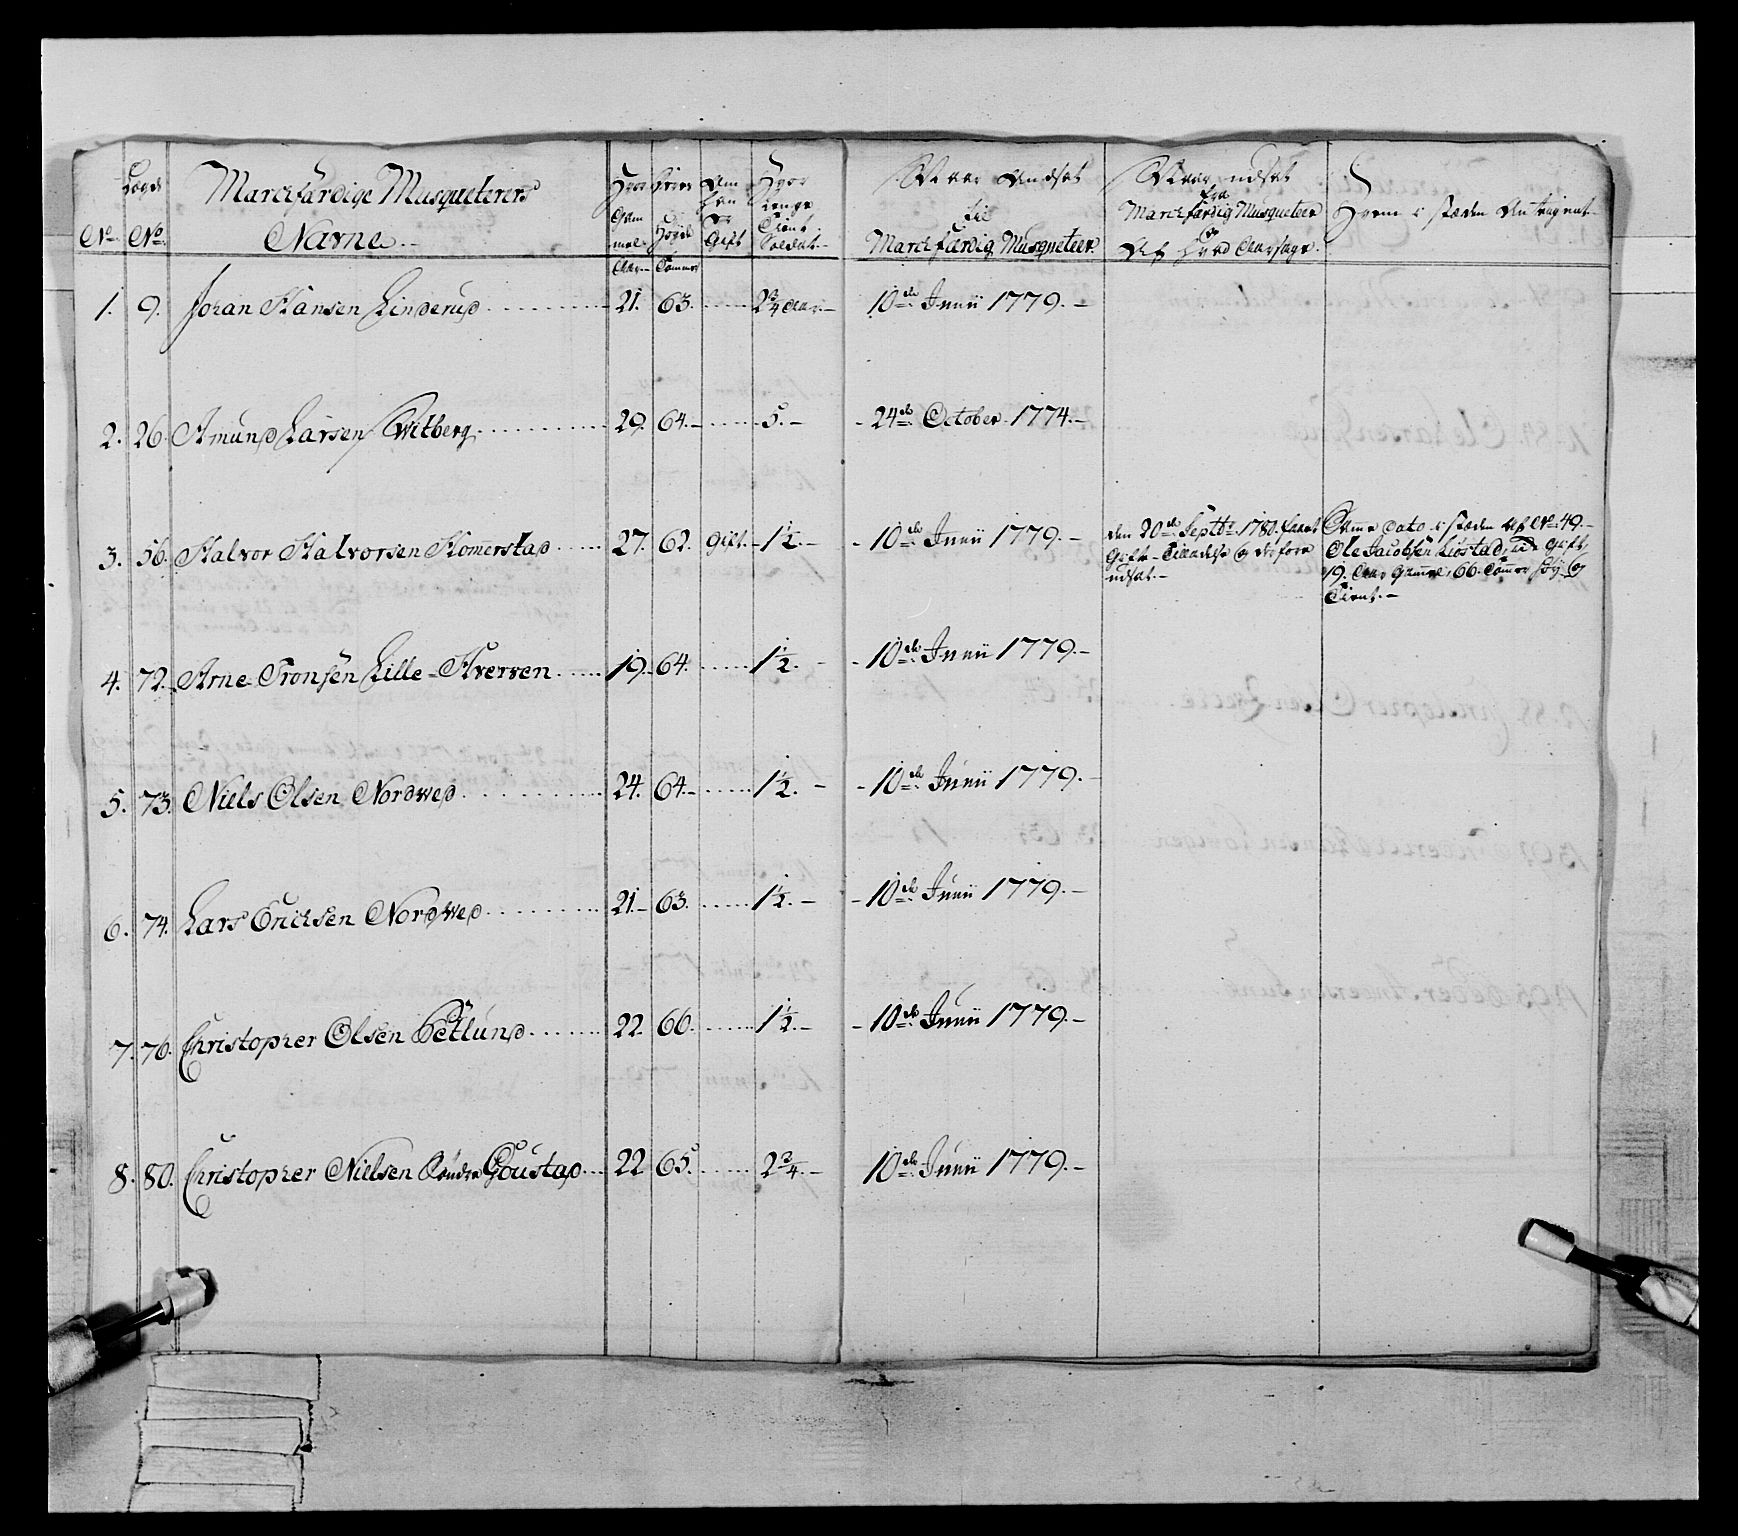 Lægds
Marchfærdige Musqueterers
Navne
No. No.
Hvor Gammel Aar
Hvor Høy Tommer
Om han er Gift
Hvor Længe Tient Soldat
Naar Andsat
til
Marchfærdig Musqueteer
Naar udsat
fra
Marchfærdig Musqueteer
og
Af Hvad Aarsage
Hvem i stæden Antagent
1. 9. Johan Hansen Linderud 21. 63. 2 3/4 Aar. 10de Junii 1779.
2. 26. Amund Larsen Qvitberg 29. 64. 5. 24de October 1774.
3. 56. Halvor Halvorsen Homerstad 27. 62. Gift. 1 1/2. 10de Junii 1779.
den 20de Septbr 1780. faaet
Gifte-Tilladelse og derfore
udsat.
Samme dato i stæden af No. 49.
Ole Jacobsen Liøstad, ude Gift,
19. Aar Gammel, 66. Tommer høy og
Tient.
4. 72. Arne Tronsen Lille-Hverven 19. 64. 1 1/2. 10de Junii 1779.
5. 73. Niels Olsen Nordwed 24. 64. 1 1/2. 10de Junii 1779.
6. 74. Lars Erichsen Nordwed 21. 63. 1 1/2. 10de Junii 1779.
7. 76. Christopher Olsen Petlund 22. 66. 1 1/2. 10de Junii 1779.
8. 80. Christopher Nielsen Søndre Goustad 22 65. 2 3/4. 10de Junii 1779.